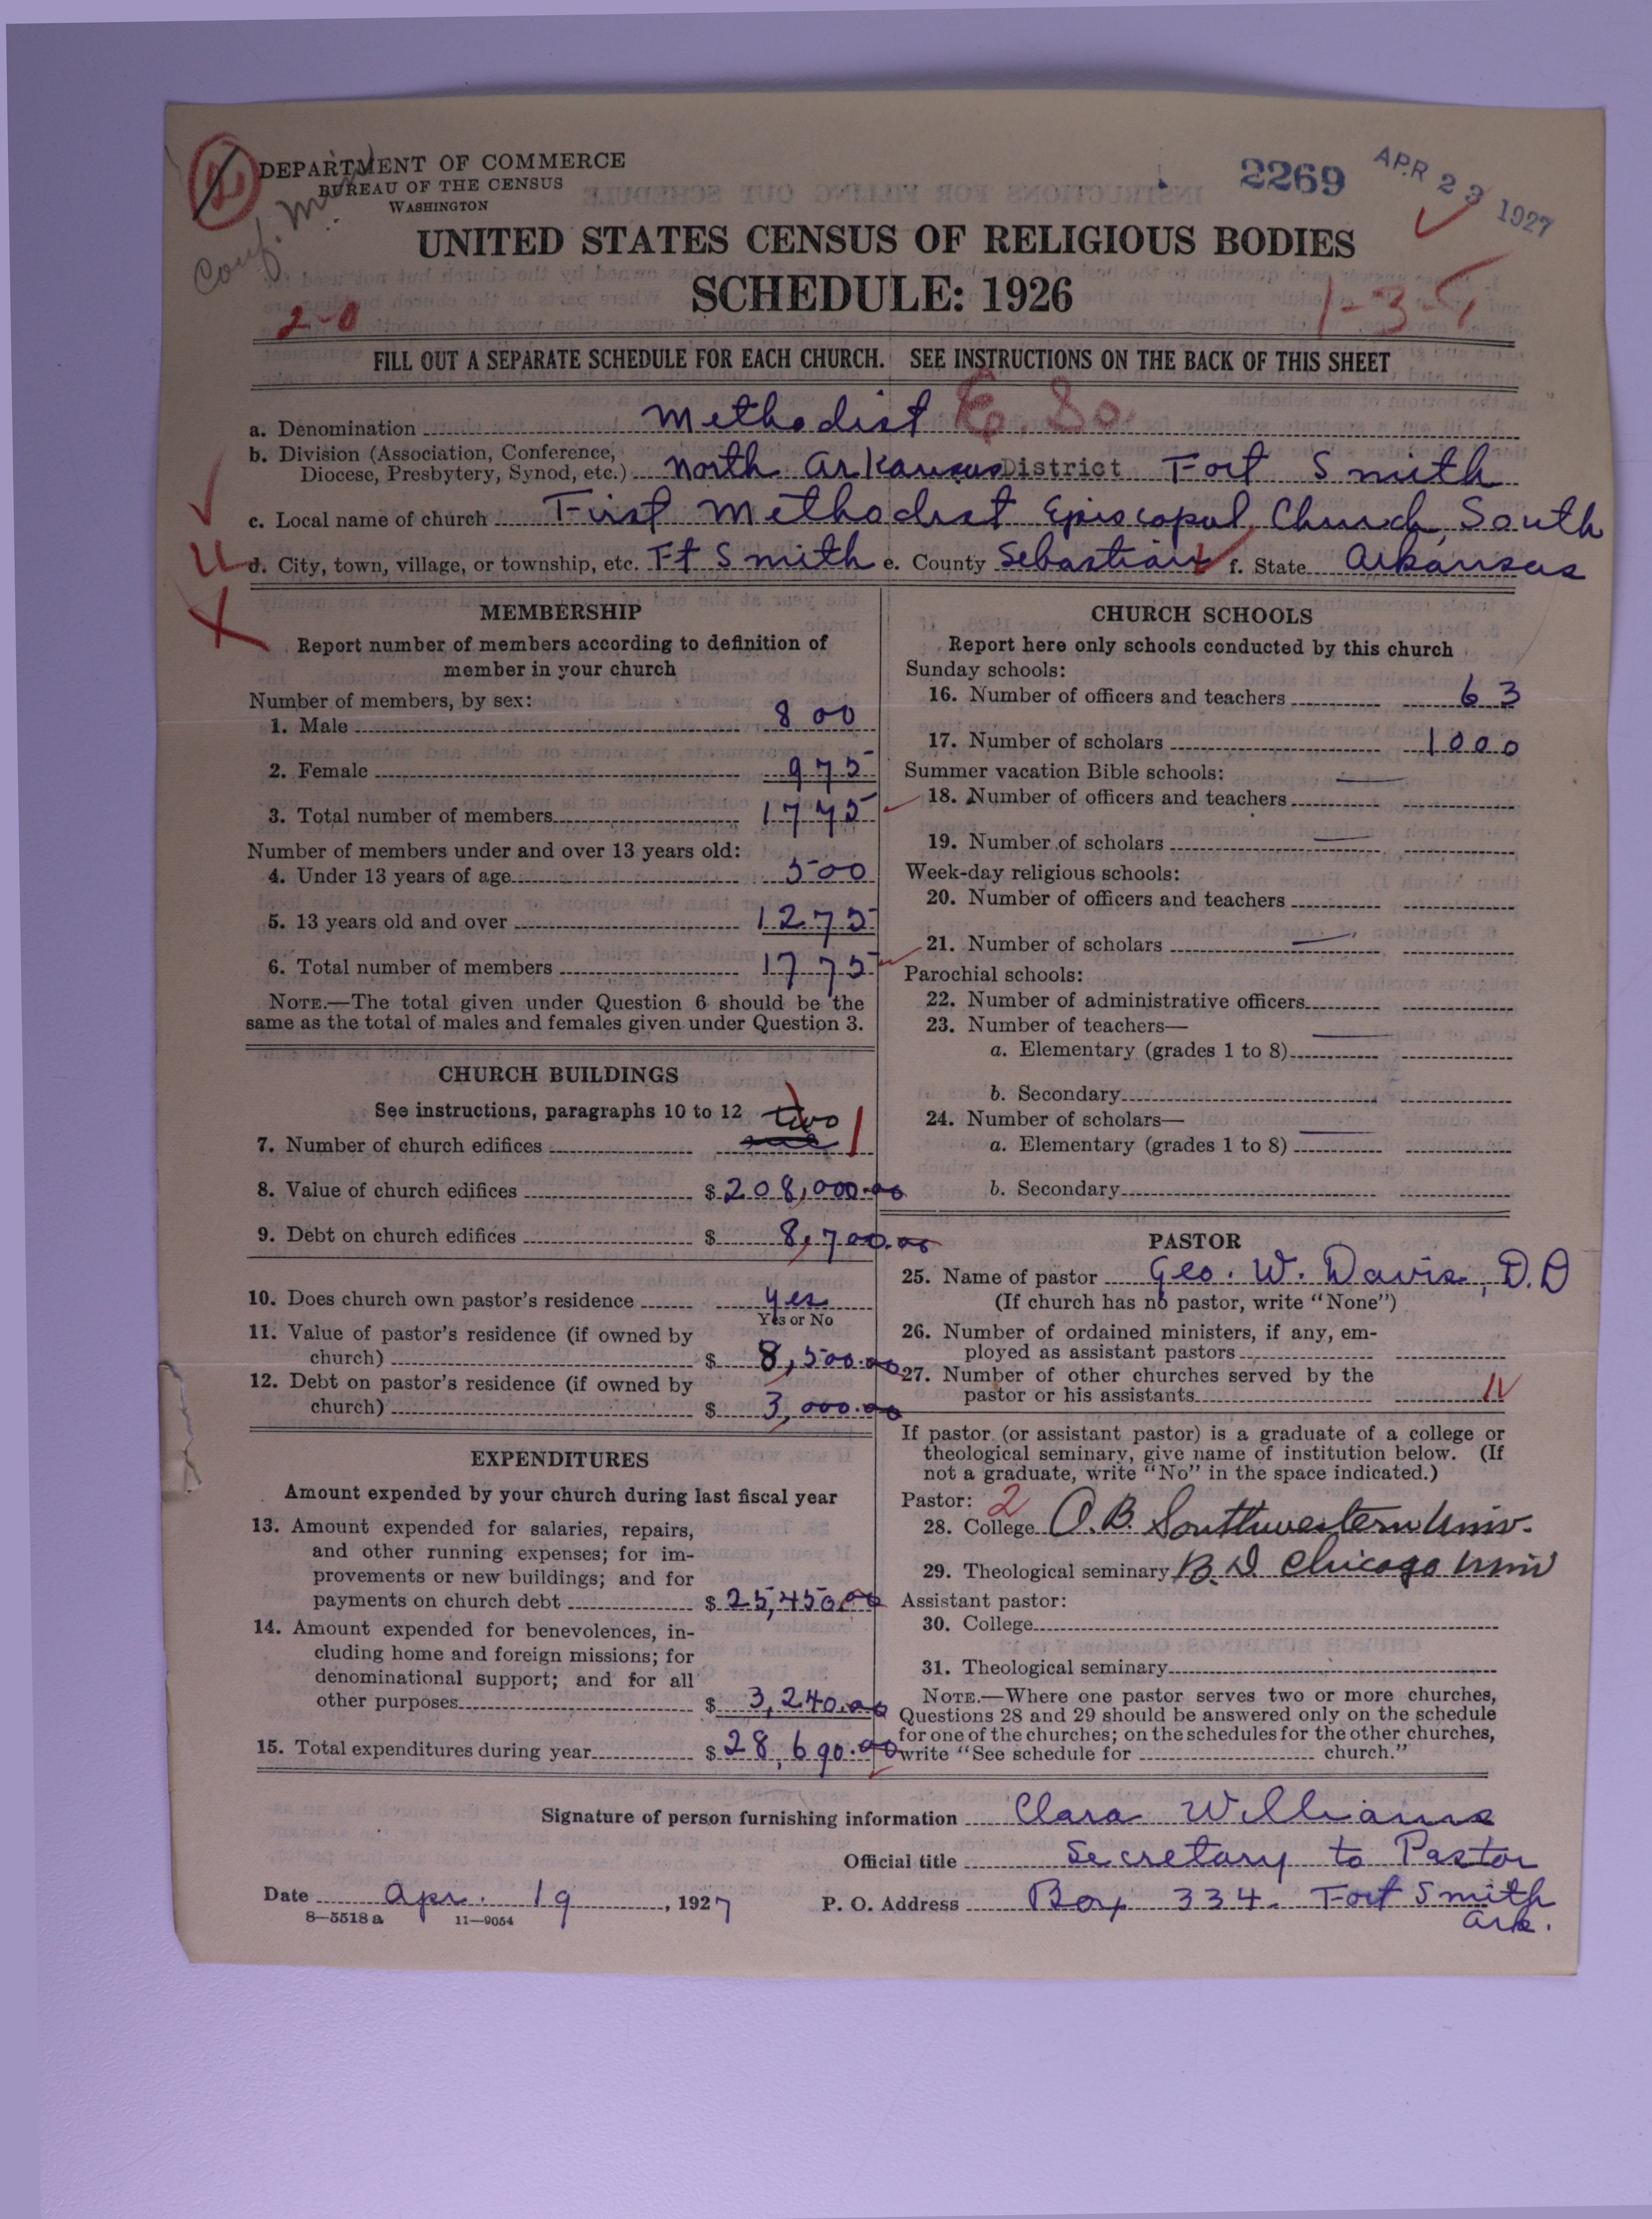 DEPARTMENT OF COMMERCE
BUREAU OF THE CENSUS
WASHINGTON
2269
APR 23 1927
Conf.
UNITED STATES CENSUS OF RELIGIOUS BODIES
SCHEDULE: 1926
2-0
1-3-
FILL OUT A SEPARATE SCHEDULE FOR EACH CHURCH. SEE INSTRUCTIONS ON THE BACK OF THIS SHEET
a. Denomination Methodist Ep. So.
b. Division (Association, Conference,
Diocese, Presbytery, Synod, etc.) North Arkansas District Fort Smith
c. Local name of church First Methodist Episcopal Church, South
d. City, town, village, or township, etc. Ft Smith e. County Sebastian f. State Arkansas
MEMBERSHIP
Report number of members according to definition of
member in your church
Number of members, by sex:
1. Male 800
2. Female 975
3. Total number of members 1775
Number of members under and over 13 years old:
4. Under 13 years of age 500
5. 13 years old and over 1275
6. Total number of members 1775
NOTE.—The total given under Question 6 should be the
same as the total of males and females given under Question 3.
CHURCH BUILDINGS
See instructions, paragraphs 10 to 12 two
7. Number of church edifices one 1
8. Value of church edifices $ 208,000.00
9. Debt on church edifices $ 8,700.00
10. Does church own pastor's residence yes
Yes or No
11. Value of pastor's residence (if owned by
church) $ 8,500.00
12. Debt on pastor's residence (if owned by
church) $ 3,000.00
EXPENDITURES
Amount expended by your church during last fiscal year
13. Amount expended for salaries, repairs,
and other running expenses; for im-
provements or new buildings; and for
payments on church debt $ 25,450.00
14. Amount expended for benevolences, in-
cluding home and foreign missions; for
denominational support; and for all
other purposes $ 3,240.00
15. Total expenditures during year $ 28,690.00
CHURCH SCHOOLS
Report here only schools conducted by this church
Sunday schools:
16. Number of officers and teachers 63
17. Number of scholars 1000
Summer vacation Bible schools:
18. Number of officers and teachers
19. Number of scholars
Week-day religious schools:
20. Number of officers and teachers
21. Number of scholars
Parochial schools:
22. Number of administrative officers
23. Number of teachers—
a. Elementary (grades 1 to 8)
b. Secondary
24. Number of scholars—
a. Elementary (grades 1 to 8)
b. Secondary
PASTOR
25. Name of pastor Geo. W. Davis, D.D
(If church has no pastor, write "None")
26. Number of ordained ministers, if any, em-
ployed as assistant pastors
27. Number of other churches served by the
pastor or his assistants
If pastor (or assistant pastor) is a graduate of a college or
theological seminary, give name of institution below. (If
not a graduate, write "No" in the space indicated.)
Pastor: 2
28. College A.B. Southwestern Univ.
29. Theological seminary B.D Chicago Univ
Assistant pastor:
30. College
31. Theological seminary
NOTE.—Where one pastor serves two or more churches,
Questions 28 and 29 should be answered only on the schedule
for one of the churches; on the schedules for the other churches,
write "See schedule for church."
Signature of person furnishing information Clara Williams
Official title Secretary to Pastor
Date Apr. 19, 1927 P. O. Address Box 334. Fort Smith
Ark.
8—5518 a 11—9054